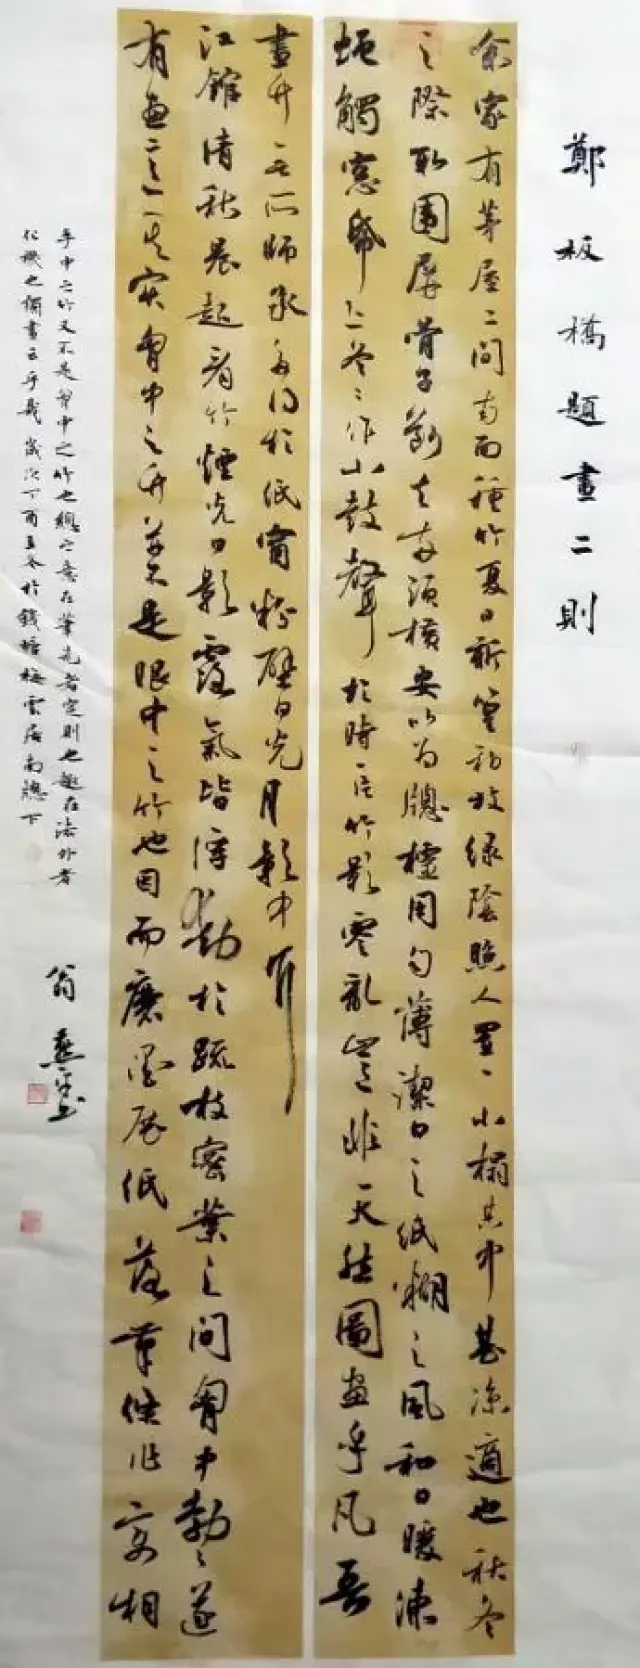 鄭板橋題畫二則
余家有茅屋二間南面種竹夏日新篁初放綠陰照人置一小榻其中甚涼適也秋冬
之際取圍屏骨子斷去兩頭橫安以為牕櫺用勻薄潔白之紙糊之風和日暖凍
蠅觸窗紙上冬〻作小鼓聲於時一片竹影零亂豈非天然圖畫乎凡吾
畫竹無所師承多得於紙窗粉壁日光月影中耳
江館清秋晨起看竹煙光日影露氣皆浮動於疏枝密葉之間胸中勃〻遂
有畫意其實胸中之竹並不是眼中之竹也因而磨墨展紙落筆倏作變相
手中之竹又不是胸中之竹也總之意在筆先者定則也趣在法外者
化機也獨畫云乎哉歲次丁酉孟冬於錢塘梅雲居南牕下
翁燕